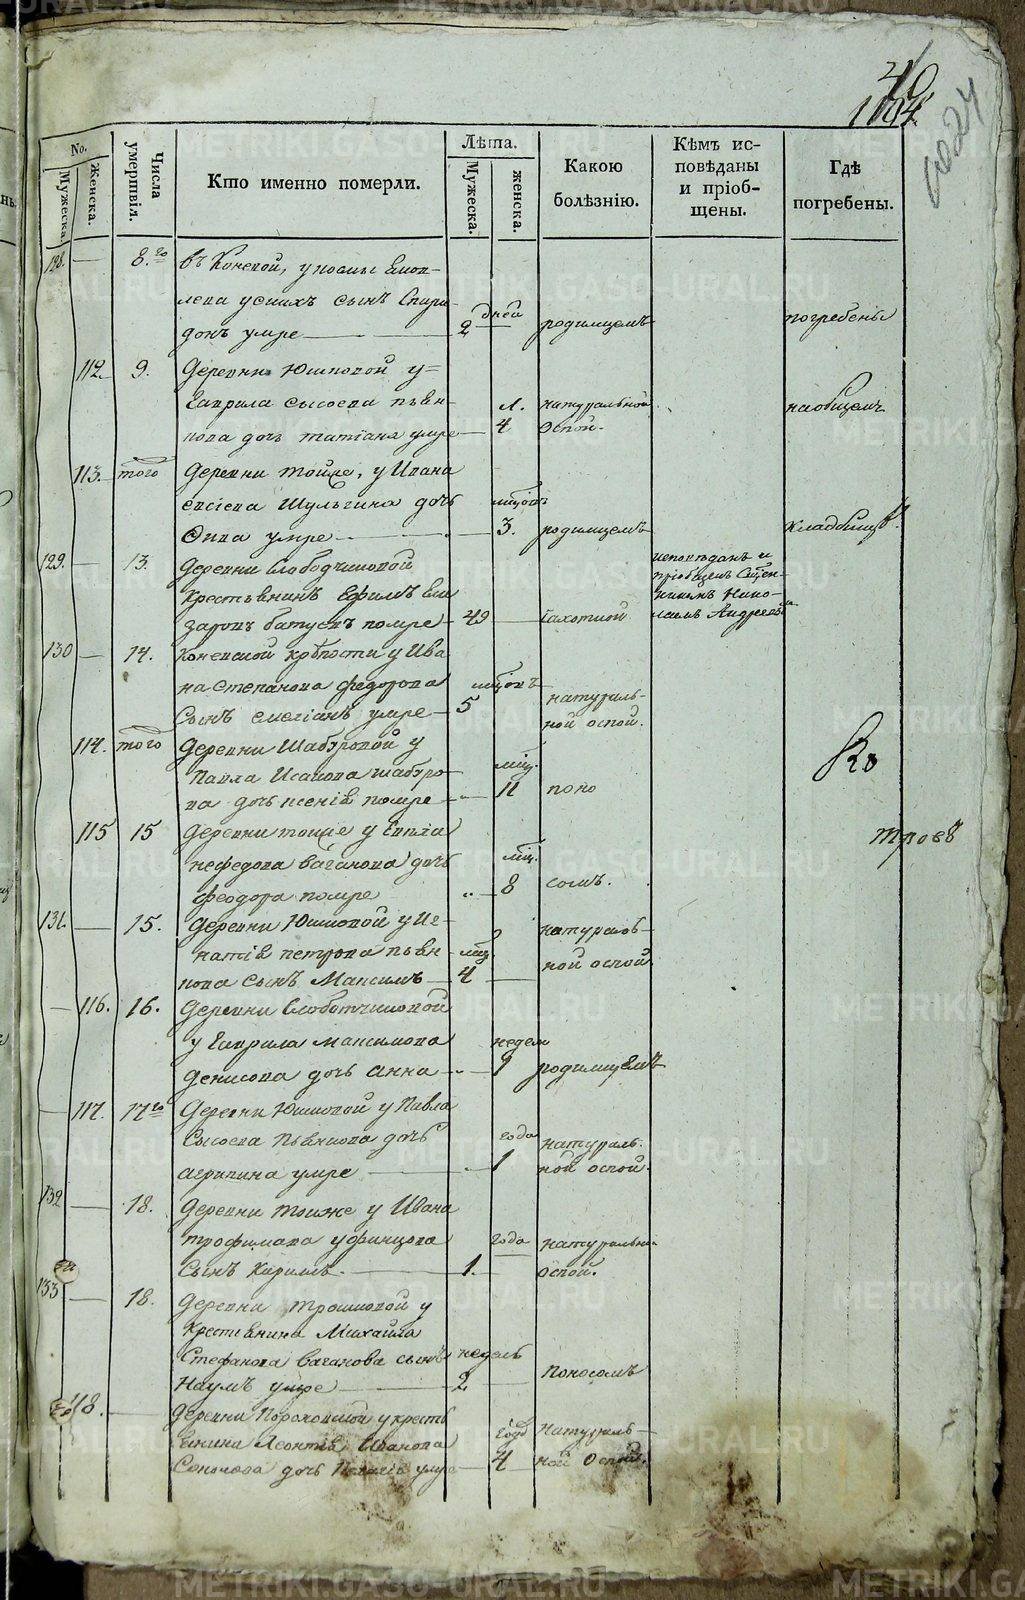 40
104.
6024
No.
Мужеска.
Женска.
Числа умертвія.
Кто именно померли.
Лѣта.
Мужеска.
женска.
Какою болѣзнію.
Кѣмъ ис-
повѣданы
и пріоб-
щены.
Гдѣ
погребены.
128. — 8.го въ Коневой, у
сынъ Спири-
донъ умре — 2 дней родимцемъ погребены
112. 9. Деревни Юшковой у
Гаврила Сысоева Пьян-
кова дочь татіана умре — л. 4 натуральной оспой. на общемъ
113. того Деревни тойже, у Ивана
Шульгина дочь
умре — мцовъ 3. родимцемъ кладбищѣ.
129. — 13. Деревни Слободчиковой
крестьянинъ Ефимъ Ели-
заровъ умре — 49 чахоткой исповѣданъ и
пріобщенъ Сщен-
никомъ Нико-
лаемъ Андреевы
130 — 14. Коневской крѣпости у Ива
на Степанова федорова
Сынъ умре — мцовъ 5 натураль-
ной оспой.
114. того Деревни Шабуровой у
Павла Исакова шабуро-
ва дочь ксенія помре — мц. 11 поно
115 15 Деревни тойже у
нефедова ваганова дочь
феодора помре — мц. 8 сомъ.
131. — 15. Деревни Юшковой у Иг-
натія петрова пьян-
кова сынъ Максимъ — мц. 4 натураль-
ной оспой.
— 116. 16. Деревни Слоботчиковой
у Гаврила максимова
денисова дочь анна — недели 1 родимцемъ
117. 17го Деревни Юшковой у Павла
Сысоева Пьянкова дочь
агрипина умре — года 1 натураль-
ной оспой.
132 — 18. Деревни тойже у Ивана
трофимова уфинцова
Сынъ Кирилъ. — года 1. натуральной
оспой.
133 — 18. Деревни трошковой у
крестьянина Михайла
Стефанова ваганова сынъ
Наумъ умре — недель 2 поносомъ
118. — Деревни Пороховской у кресть
янина Леонтія Иванова
Соколова дочь умре — годъ 4 Натураль-
ной Оспой.
Ко
тровъ
METRIKI.GASO-URAL.RU